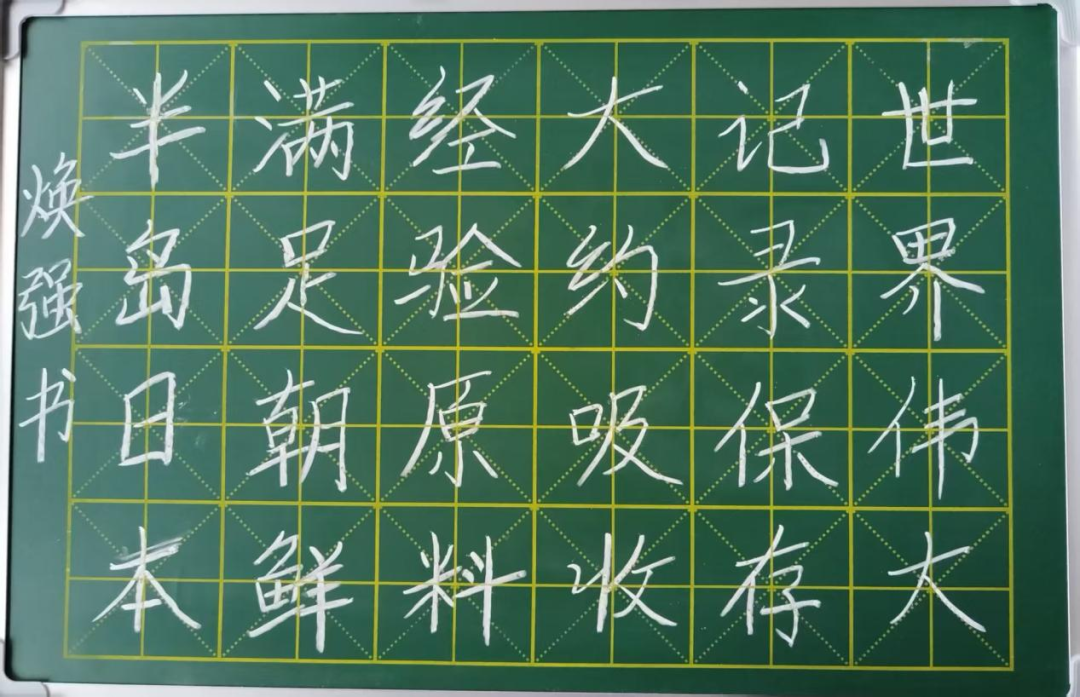 世界伟大
记录保存
大约吸收
经验原料
满足朝鲜
半岛日本
焕强书